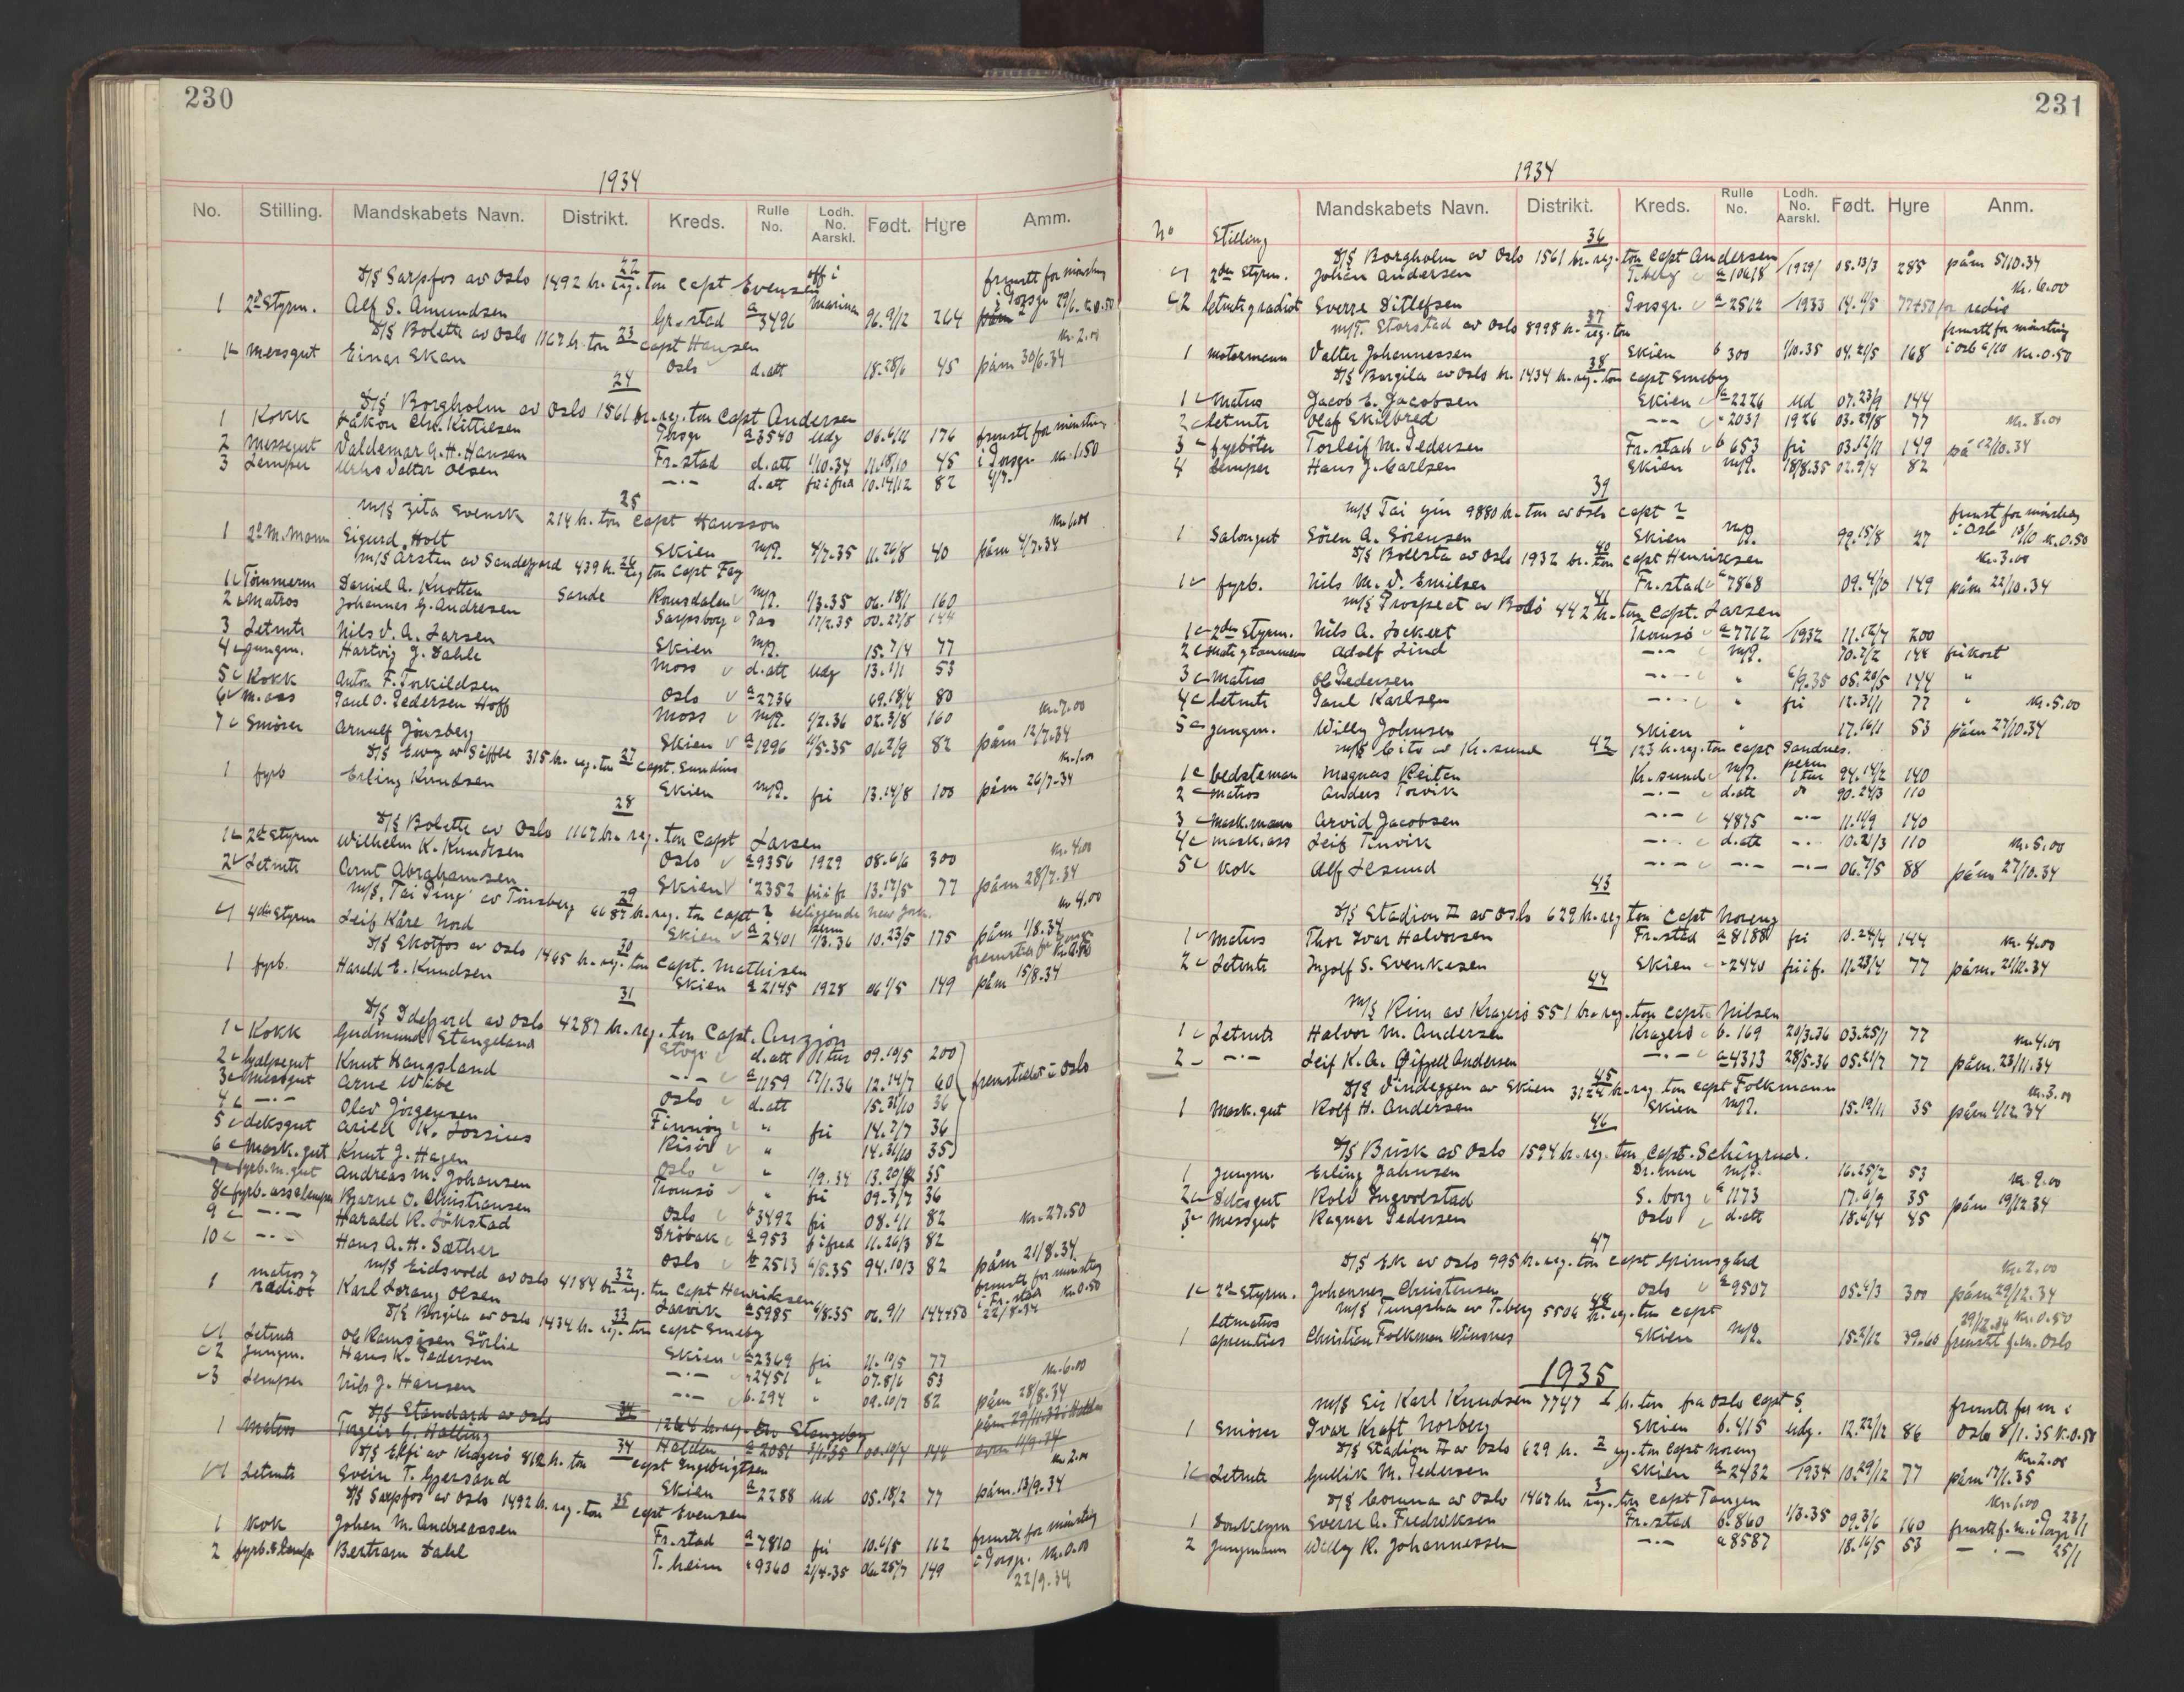 230
1934
No. Stilling. Mandskabets Navn. Distrikt. Kreds. Rulle No. Lodh. No. Aarskl. Født. Hyre Amm.
22
D/S Sarpfos av Oslo 1492 br. reg. ton Capt. Evensen
1 2d Styrm. Alf S. Amundsen Gr.stad a 3496 off i marinen 96. 9/12 264 fremstt for mönstring i Porsgr 29/6. K 0.50
23
D/S Bolette av Oslo 1167 br. ton capt Hansen Kr. 2.00
1 Messgut Einar Ekan Oslo d.att 18. 28/6 45 påm 30/6.34
24
D/S Borgholm av Oslo 1561 br. reg. ton Capt Andersen
1 Kokk Håkon Chr. Kittilsen Porsgr a 3540 Udg 06. 6/12 176 fremstt for mönstring
2 Messegut Valdemar A. H. Hansen Fr.stad d.att 1/10.34 11. 18/10 45 i Porsgr. Kr. 1.50
3 Lemper Valter Olsen —·— d.att fri i fred 10. 14/12 82 4/7.
25
M/S Zita Svensk 214 br. ton Capt Hansson Kr. 1.00
1 2d M. Mann Sigurd Holt Skien M/P. 4/7.35 11. 26/8 40 påm 4/7.34
26
M/S Arsten av Sandefjord 439 br. reg ton Capt Fay
1 Tömmerm Daniel A. Knotten Sande Romsdalen M/P. 1/3.35 06. 18/1 160
2 Matros Johannes G. Andresen Sarpsborg Pas 17/2.35 00. 27/8 144
3 Letmtr Nils V. A. Larsen Skien M/P. 15. 7/4 77
4 Jungm. Hartvig J. Dahle Moss d.att udg 13. 1/1 53
5 Kokk Anton F. Torkildsen Oslo a 2736 69. 18/4 80
6 M. ass Paul O. Pedersen Hoff Moss M/P. 1/2.36 02. 3/8 160 Kr. 7.00
7 Smörer Arnulf Jönsberg Skien a 1296 4/5.35 06. 2/9 82 påm 12/7.34
27
D/S Ewy av Säffle 315 br. reg. ton Capt. Sundius Kr. 1.00
1 fyrb Erling Knudsen Skien M/P. fri 13. 14/8 100 påm 26/7.34
28
D/S Bolette av Oslo 1167 br. reg. ton Capt Larsen
1 2d Styrm Wilhelm K. Knudtsen Oslo a 9356 1929 08. 6/6 300 Kr. 4.00
2 Letmtr Arnt Abrahamsen Skien " 2352 fri i fr 13. 17/5 77 påm 28/7.34
29
M/S. Tai Ping av Tönsberg 6687 br. reg. ton Capt ? beliggende New York. Kr 4.00
1 4de Styrm Leif Kåre Nord Skien a 2401 perm 1/3.36 10. 23/5 175 påm 1/8.34
30
D/S Skotfos av Oslo 1465 br. reg. ton Capt. Mathisen
1 fyrb. Harald E. Knudsen Skien a 2145 1928 06 1/5 149 påm 15/8.34
31
D/S Idefjord av Oslo 4287 br. reg. ton Capt. Angzjon
1 Kokk Gudmund Stangeland Stvgr d.att 1 tur 09. 10/5 200
2 Hjælpegut Knut Haugsland —·— a 1159 17/1.36 12. 14/7 60 fremstilt i Oslo
3 Messgut Arne Wibe Oslo d.att 15. 31/10 36
4 —·— Olav Jörgensen Finnöy " fri 14. 7/7 36
5 deksgut Arild K. Lossius Risör " 14. 31/10 35
6 Mask. gut Knut J. Hagen Oslo " 1/9.34 13. 20/12 35
7 fyrb. m. gut Andreas M. Johansen Tromsö " fri 09. 3/7 36
8 fyrb. ass Lemper Bjarne O. Christiansen Oslo b 3492 fri 08. 1/1 82 Kr. 27.50
9 —·— Harald R. Lökstad Dröbak a 953 f i fred 11. 26/3 82
10 —·— Hans A. H. Sæther Oslo b 2513 4/5.35 94. 10/3 82 påm 21/8.34
32
M/S Eidsvold av Oslo 4184 br. reg. ton Capt Henriksen
1 matros & radiot Karl Lorang Olsen Larvik a 5985 4/8.35 06. 9/1 144+50 fremstt for mönstring i Fr.stad Kr. 0.50 22/8.34
33
D/S Borgila av Oslo 1434 br. reg. ton Capt Emeby
1 Letmtr Ole Ramsåsen Sörlie Skien a 2369 fri 11. 10/5 77
2 Jungm. Hans K. Pedersen —·— " 2451 " 07. 8/6 53 Kr. 6.00
3 Lemper Nils J. Hansen —·— b. 294 " 09. 10/7 82 påm 28/8.34
D/S Standard av Oslo 34 1264 br. reg. ton Stangeby
1 Matros Torgeir G. Halling Halden a 2051 1/1.35 00. 10/4 144
34
D/S Elfi av Kragerö 812 br. ton Capt Engebrigtsen Kr 2.00
1 Letmtr Svein T. Gjersand Skien a 2288 ud 05. 18/2 77 påm. 13/9.34
35
D/S Sarpfos av Oslo 1492 br. reg. ton Capt Evensen
1 Kok Johan M. Andreassen Fr.stad a 7810 fri 10. 6/5 162 fremstt for mönstring
2 fyrb. & Lemp. Bertram Dahl T. heim " 9360 21/4.35 06. 25/7 149 i Porsgr. Kr. 0.00 22/9.34
231
1934
No Stilling Mandskabets Navn. Distrikt. Kreds. Rulle No. Lodh. No. Aarskl. Født. Hyre Anm.
36
D/S Borgholm av Oslo 1561 br. reg. ton Capt Andersen
1 2den Styrm. Johan Andersen T.berg a 10618 1929 08. 13/3 285 påm 5/10.34
2 letmtr & radiot Sverre Ditlefsen Porsgr. a 2512 1933 14. 4/5 77+50 for radio Kr. 6.00
37
M/T. Storstad av Oslo 8998 br. reg. ton
1 motormann Valter Johannessen Skien b 300 1/10.35 04. 21/5 168 fremstt for mönstring i Oslo 6/10 Kr. 0.50
38
D/S Borgila av Oslo br. 1434 br. reg. ton Capt Emeby
1 Matros Jacob E. Jacobsen Skien a 2226 ud 07. 23/9 144
2 letmtr Olaf Skilbred —·— " 2031 1926 03. 29/8 77 Kr. 8.00
3 fyrböter Torleif M. Pedersen Fr.stad b 653 fri 03. 12/11 149 på 12/10.34
4 Lemper Hans J. Carlsen Skien M/P. 18/8.35 02. 9/4 82
39
M/S Tai Yin 9880 br. ton av Oslo Capt ?
1 Salongut Sören A. Sörensen Skien M/P. 99. 15/8 27 fremst for mönstring i Oslo 13/10 K. 0.50
40
D/S Bollsta av Oslo 1932 br. ton Capt Henriksen Kr. 3.00
1 fyrb. Nils M. V. Emilsen Fr.stad a 7868 09. 4/10 149 påm 22/10.34
41
M/S Prospect av Bodö 442 br. ton Capt. Larsen
1 2den Styrm. Nils A. Lockert Tromsö a 7712 1932 11. 12/7 200
2 Adolf Lind —·— M/P. 70. 2/2 144 frikost
3 Matros Ole Pedersen —·— " 6/9.35 05. 20/5 144 "
4 letmtr Paul Karlsen —·— " fri 12. 31/1 77 " Kr. 5.00
5 jungm. Willy Johnsen Skien " 17. 16/1 53 påm 27/10.34
M/S Cito av Kr.sund 42 123 br. reg. ton Capt Sandnes.
1 bedsteman Magnus Reiten Kr.sund M/P. perm 1 tur 94. 14/2 140
2 Matros Anders Torvik —·— d.att do 90. 24/3 110
3 Mask. mann Arvid Jacobsen —·— 4875 —·— 11. 11/9 140
4 mask. ass Leif Tinvik —·— d.att —·— 10. 21/3 110 Kr. 5.00
5 Kok Alf Lesund —·— —·— —·— 06. 7/5 88 påm 27/10.34
43
D/S Stadion II av Oslo 629 br. reg ton Capt Noreng
1 Matros Thor Ivar Halvorsen Fr.stad a 8188 fri 10. 24/4 144 Kr. 4.00
2 Letmtr Ingolf S. Svenkesen Skien " 2440 fri i f. 11. 23/4 77 påm. 21/11.34
44
M/S Rim av Kragerö 551 br. reg. ton Capt. Nilsen
1 Letmtr Halvor M. Andersen Kragerö b. 169 20/3.36 03. 25/1 77 Kr. 4.00
2 —·— Leif K. A. Gifjell Andersen —·— a 4313 28/5.36 05. 21/7 77 påm. 23/11.34
45
D/S Vindeggen av Skien 3122 br. reg. ton Capt Folkmann Kr. 3.00
1 Mask. gut Rolf H. Andersen Skien M/P. 15. 19/11 35 påm 1/12.34
46
D/S Brisk av Oslo 1594 br. reg. ton Capt. Schinrud.
1 Jungm. Erling Jahnsen Dr.men M/P. 16. 25/2 53 Kr. 9.00
2 Deksgut Rolv Ingvolstad S. borg a 1173 17. 6/9 35 påm 19/12.34
3 Messgut Ragnar Pedersen Oslo d.att 18. 6/4 45
47
D/S Ek av Oslo 995 br. reg. ton Capt Grimsgård Kr. 2.00
1 2d Styrm. Johannes Christensen Oslo a 9507 05. 4/3 300 påm 29/12.34
48
M/S Tungsha av T.berg 5506 br. reg. ton Capt
1 letmatros aprentice Christian Folkman Winsnes Skien M/P. 15. 2/12 39.60 29/12.34 Kr. 0.50 fremstt f. m. Oslo
1935
M/S Sir Karl Knudsen 7747 br. ton fra Oslo Capt S.
1 Smörer Ivar Kraft Norberg Skien b. 415 udg. 12. 22/12 86 fremstt for m i Oslo 8/1.35 K. 0.50
2
D/S Stadion II av Oslo 629 br. reg. ton Capt Noreng Kr. 2.00
1 Letmtr Gullik M. Pedersen Skien a 2432 1934 10. 29/12 77 påm 17/1.35
3
D/S Corona av Oslo 1467 br. reg. ton Capt Tangen Kr. 1.00
1 Donkeym Sverre A. Fredriksen Fr.stad b. 860 1/3.35 09. 3/6 160 fremstt f. m. i Porsgr 23/1
2 Jungmann Willy R. Johannessen —·— a 8587 18. 16/5 53 —·— 25/1